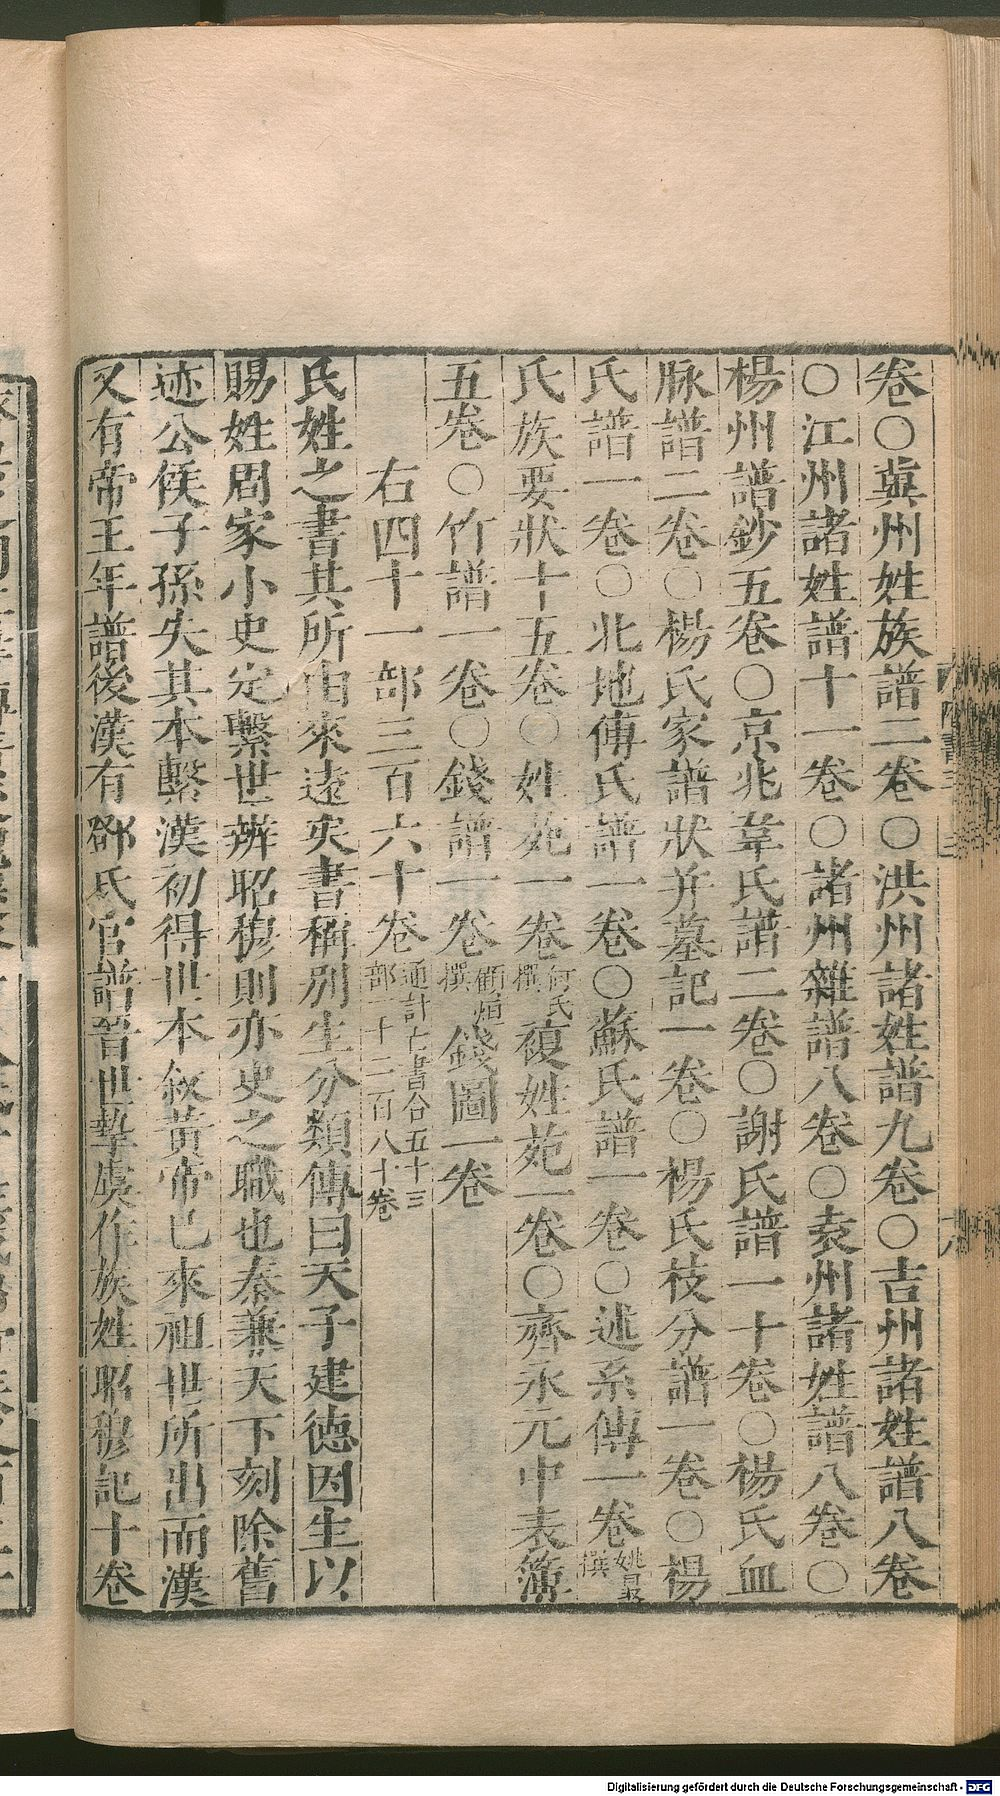 卷○冀州姓族譜二卷○洪州諸姓譜九卷○吉州諸姓譜八卷
○江州諸姓譜十一卷○諸州雜譜八卷○袁州諸姓譜八卷○
楊州譜鈔五卷○京兆韋氏譜二卷○謝氏譜一十卷○楊氏血
脉譜二卷○楊氏家譜狀并墓記一卷○楊氏枝分譜一卷○楊
氏譜一卷○北地傅氏譜一卷○蘇氏譜一卷○述系傳一卷姚最撰
氏族要狀十五卷○姓苑一卷何氏撰複姓苑一卷○齊永元中表簿
五卷○竹譜一卷○錢譜一卷顧烜撰錢圖一卷
右四十一部三百六十卷通計亡書合五十三部一千二百八十卷
氏姓之書其所由來遠矣書稱別生分類傳曰天子建德因生以
賜姓周家小史定繫世辨昭穆則亦史之職也秦兼天下刻除舊
迹公侯子孫失其本繫漢初得世本叙黃帝已來祖世所出而漢
又有帝王年譜後漢有鄧氏官譜晉世摯虞作族姓昭穆記十卷
Digitalisierung gefördert durch die Deutsche Forschungsgemeinschaft - DFG